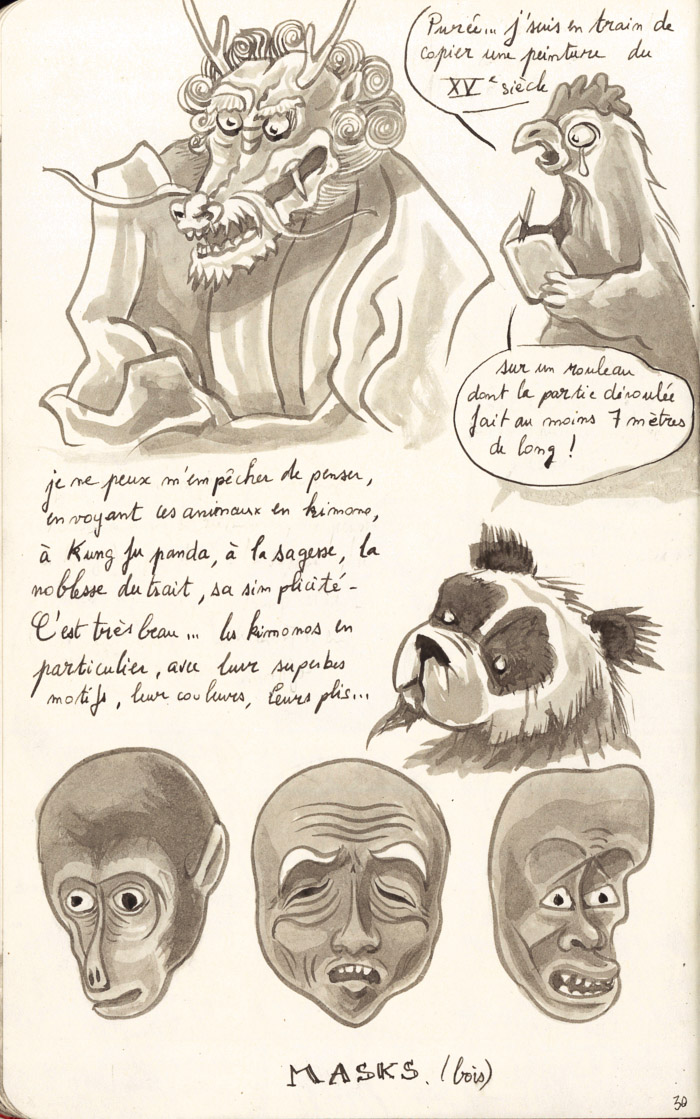 Purée... j'suis en train de
copier une peinture du
XVe siècle
sur un rouleau
dont la partie déroulée
fait au moins 7 mètres
de long !
je ne peux m'empêcher de penser,
en voyant ces animaux en kimono,
à Kung fu panda, à la sagesse, la
noblesse du trait, sa simplicité -
C'est très beau... les kimonos en
particulier, avec leur superbes
motifs, leur couleurs, leurs plis...
MASKS. (bois)
30